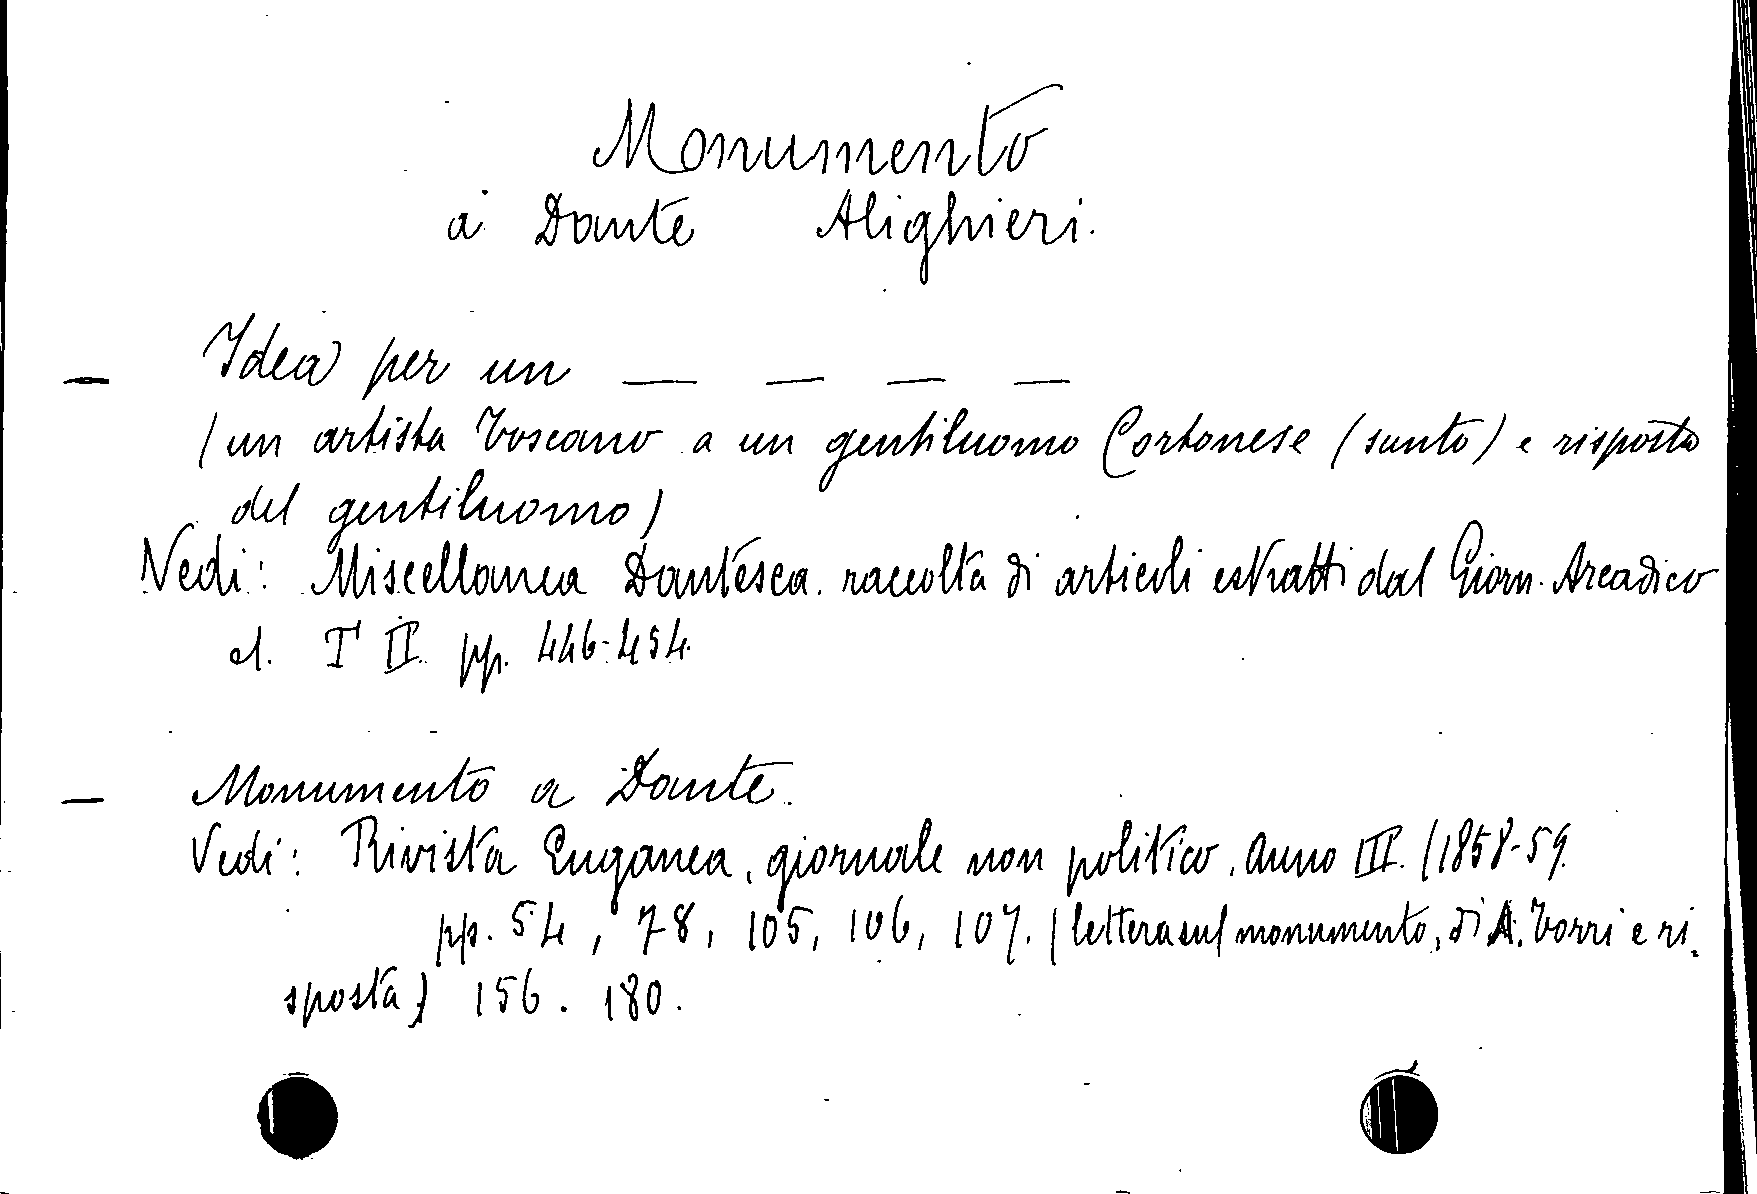 Monumento
a Dante Alighieri.
— Idea per un — — — —
(un artista Toscano a un gentiluomo Cortonese (sunto) e risposta
del gentiluomo)
Vedi: Miscellanea Dantesca. raccolta di articoli estratti dal Giorn. Arcadico
T II. pp. 446-454.
— Monumento a Dante.
Vedi: Rivista Euganea, giornale non politico. Anno III. (1858-59.
pp. 54, 78, 105, 106, 107. (lettera sul monumento, di A. Torri e ri-
sposta) 156. 180.